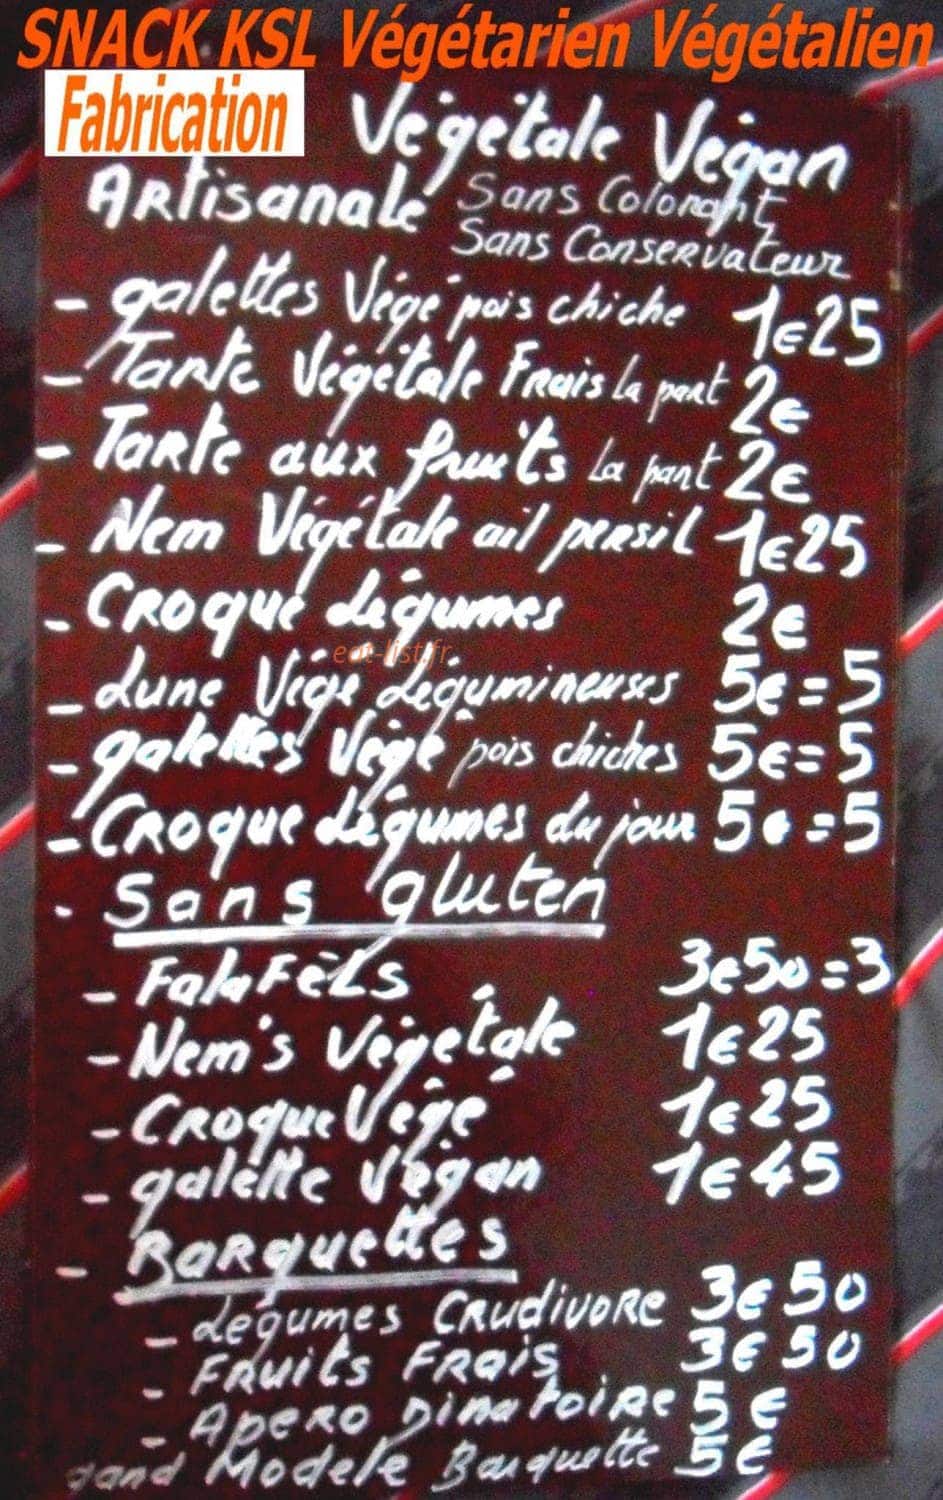 SNACK KSL Végétarien Végétalien
Fabrication
Végétale Végan
Artisanale Sans Colorant
Sans Conservateur
- galettes Végé pois chiche 1€25
- Tarte Végétale Frais la part 2€
- Tarte aux fruits la part 2€
- Nem Végétale ail persil 1€25
- Croque Légumes 2€
eat-list.fr
- Lune Végé Légumineuses 5€ = 5
- galettes Végé pois chiches 5€ = 5
- Croque Légumes du jour 5€ = 5
- Sans gluten
- Falafèls 3€50 = 3
- Nem's Végétale 1€25
- Croque Végé 1€25
- galette Végan 1€45
- Barquettes
- Légumes Crudivore 3€50
- Fruits Frais 3€50
- Apero Dinatoire 5€
gand Modele Barquette 5€